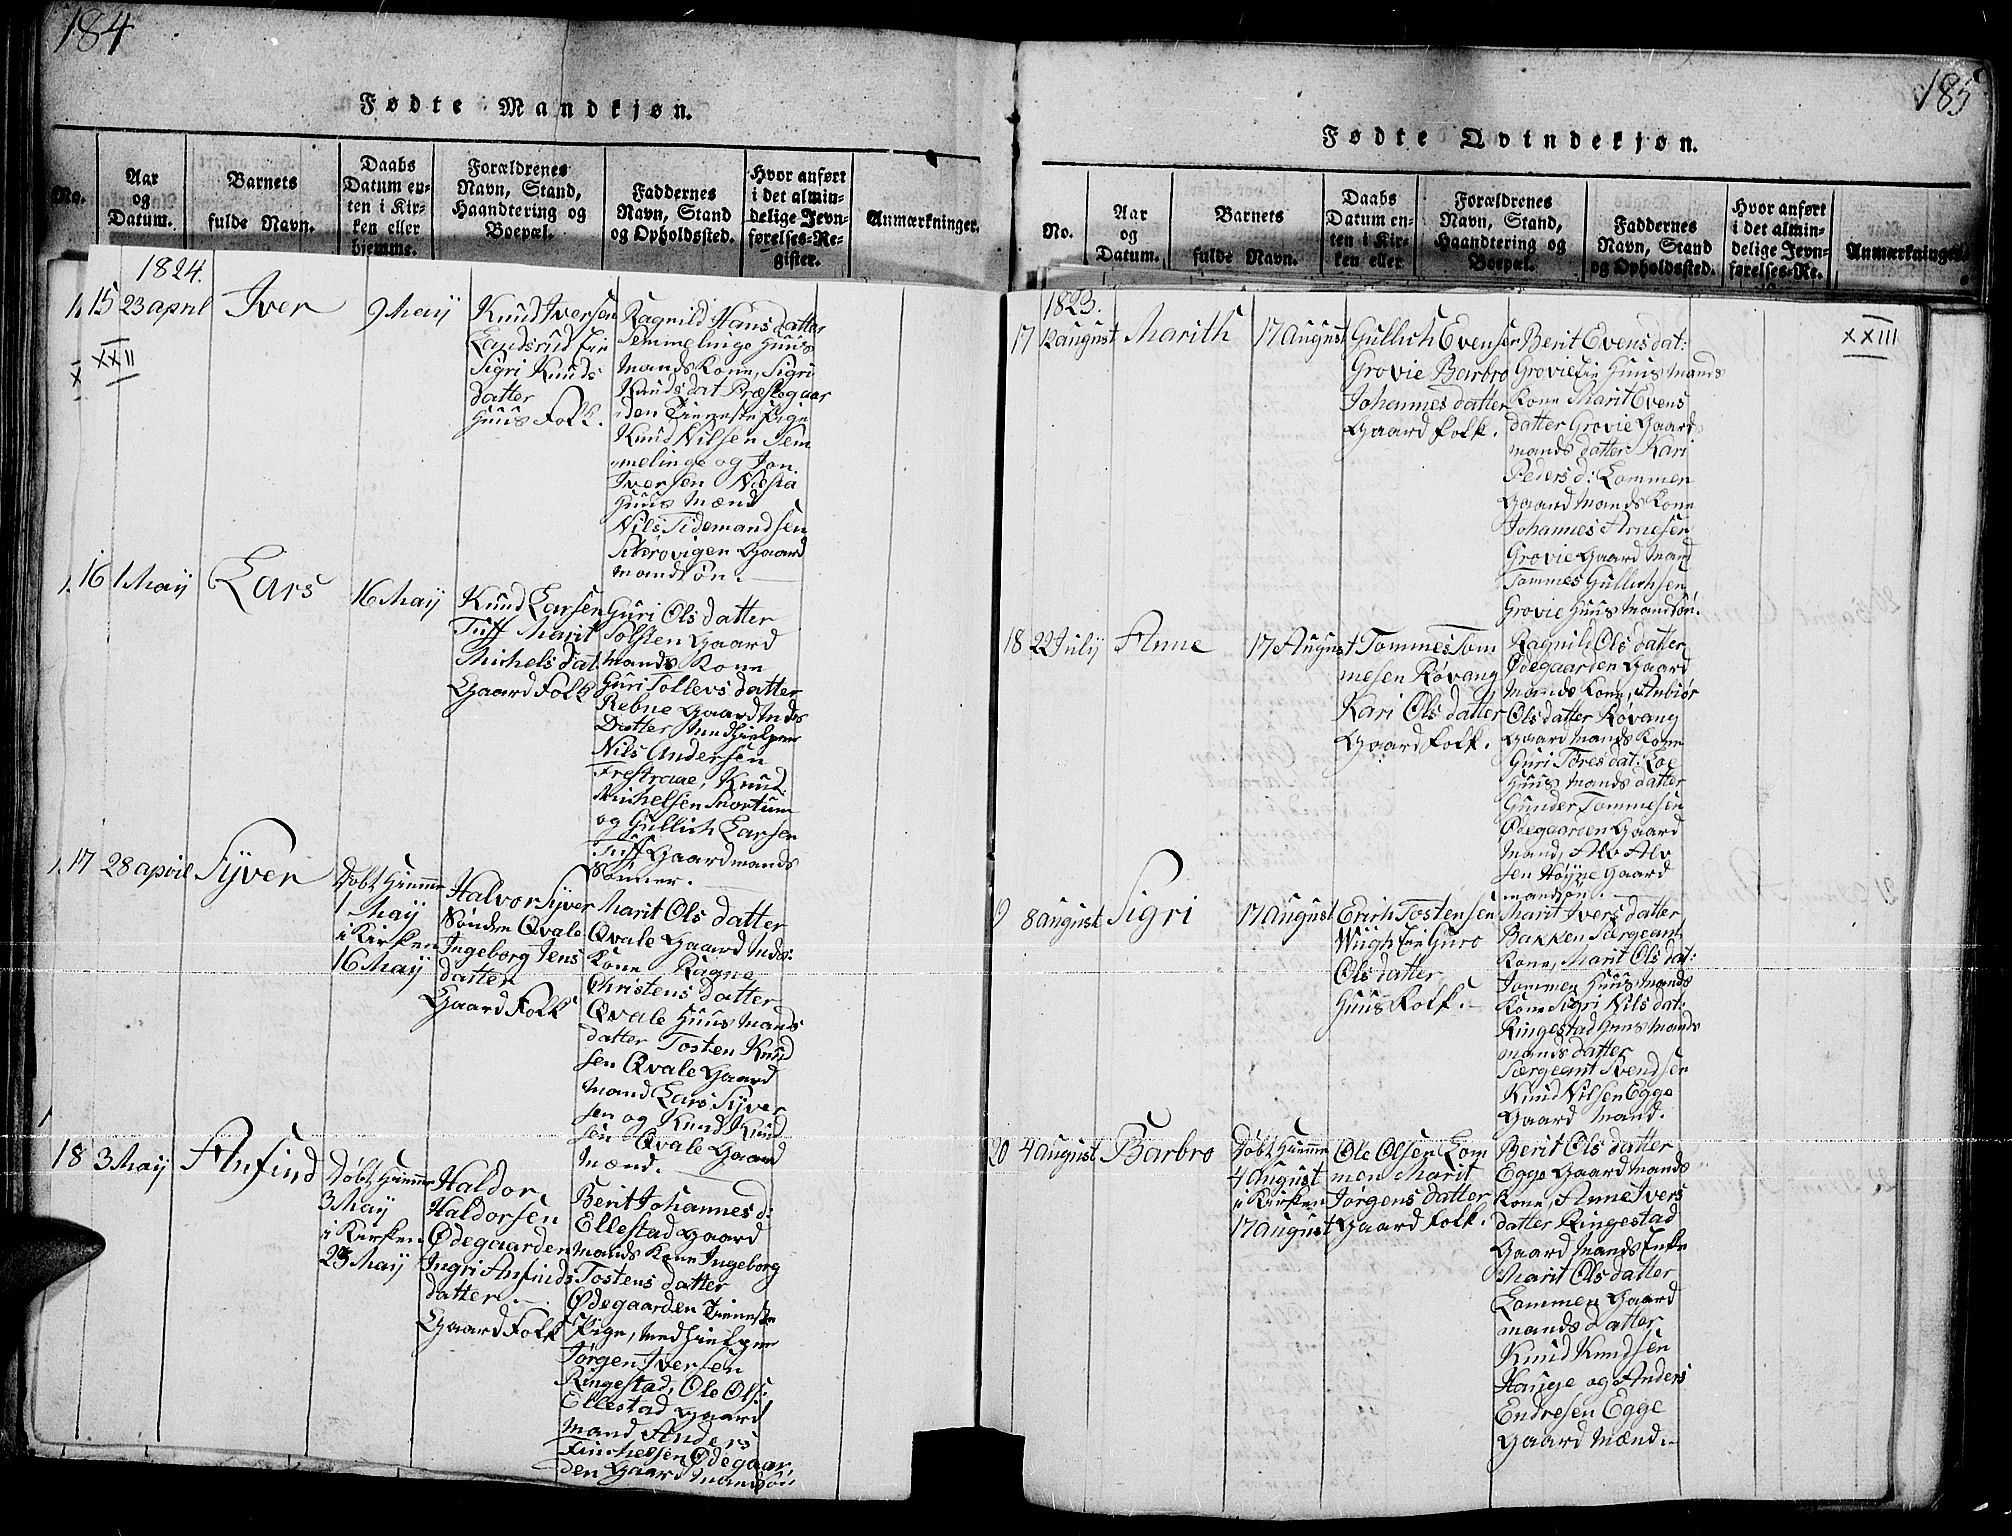 184
Fødte Mandkjøn.
No.
Aar
og
Datum.
Barnets
fulde Navn.
Daabs
Datum en-
ten i Kir-
ken eller
hjemme.
Forældrenes
Navn, Stand,
Haandtering og
Boepæl.
Faddernes
Navn, Stand
og Opholdssted.
Hvor anført
i det almin-
delige Jevn-
førelses-Re-
gister.
Anmærkninger.
1824.
15 23 april Iver 9 Maij
XXII
X
Knud Iversen
Landsrud Eie
Sigri Knuds
datter
Huus Folk.
Ragnild Hans datter
Semmelinge Huus
mands Kone, Sigri
Knuds dat Præstegaar
den Tieneste Pige
Knud Nilsen Sem
melinge og Jon
Iversen Næsia
Huus Mænd
Nils Tidemandsen
Gaard
mandsøn.
16 1 Maij Lars 16 Maij
Knud Larsen
Tuff Marit
Michels dat.
Gaard Folk
Guri Ols datter
Tolsten Gaard
mands Kone
Guri Tollevs datter
Rebne Gaard Mds
Datter, Medhielper
Nils Andersen
Frestraae, Knud
Michelsen Snortum
og Gullich Larsen
Tuff Gaardmands
Sønner.
17 28 april Syver
Døbt Hiemme
1 Maij
i Kirken
16 Maij
Halvor Syver
Sønden Qvale
Ingeborg Jens
datter
Gaard Folk
Marit Ols datter
Qvale Gaard Mds:
Kone Ragne
Christens datter
Qvale Huus Mands
datter Tosten Knud
sen Qvale Gaard
mand Lars Syver
sen og Knud Knud
sen Qvale Gaard
Mænd.
18 3 Maij Anfind
Døbt Hiemme
3 Maij
i Kirken
23 Maij
Haldor
Haldorsen
Ødegaarden
Ingri Anfinds
datter.
Gaard Folk
Berit Johannes d:
Ellestad Gaard
mands Kone Ingeborg
Tostens datter
Ødegaarden Tieneste
Pige, Medhielper
Jørgen Iversen
Ringestad, Ole Ols:
Ellestad Gaard
mand Anders
Ødegaar
den Gaard Mandsøn
185
Fødte Qvindekjøn.
No.
Aar
og
Datum.
Barnets
fulde Navn.
Daabs
Datum en-
ten i Kir-
ken eller
Forældrenes
Navn, Stand,
Haandtering og
Boepæl.
Faddernes
Navn, Stand
og Opholdssted.
Hvor anført
i det almin-
delige Jevn-
førelses-Re-
Anmærkninger.
1823.
XXIII
17 12 august Marith 17 August
Gullich Evensen
Grovie Barbro
Johannes datter
Gaard folk.
Berit Evens dat:
Grovie Eie Huus Mands
Kone Marit Evens
datter Grovie Gaard
mands datter Kari
Peders d: Lommen
Gaard Mands Kone
Johannes Arnesen
Grovie Gaard Mand
Tommes Gullichsen
Grovie Huus Mandsøn.
18 22 July Anne 17 August
Tommes Tom
mesen Røvang
Kari Ols datter
Gaard folk.
Ragnild Ols datter
Ødegaarden Gaard
Mands Kone, Anbiør
Ols datter Røvang
Gaard Mands Kone
Guri Tores dat: Loe
Huus Mands datter
Gunder Tommesen
Ødegaarden Gaard
Mand, Alv Alv
sen Høyne Gaard
mandsøn.
19 8 august Sigri 17 August
Erich Tostensen
Wiigh Eie Guro
Ols datter
Huus Folk.
Marit Ivers datter
Bakken Sergeant
Kone, Marit Ols dat:
Jommen Huus Mands
Kone Sigri Nils dat:
Ringestad Huus Mands
mands datter
Sergeant Svendsen
Knud Nilsen Egge
Gaard Mand.
20 4 August Barbro
Døbt Hiemme
4 August
i Kirken
17 August
Ole Olsen Lom
men Marit
Jørgens datter
Gaard folk.
Berit Ols datter
Egge Gaard Mands
Kone, Anne Ivers
datter Ringestad
Gaard Mands Enke
Marit Ols datter
Lommen Gaard
mands datter
Knud Knudsen
Hauge og Anders
Endresen Egge
Gaard Mænd.